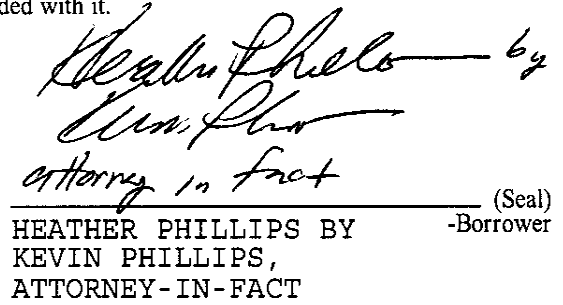 ded with it.
Heather Phillips by
Kevin Phillips
attorney in fact
(Seal)
HEATHER PHILLIPS BY -Borrower
KEVIN PHILLIPS,
ATTORNEY-IN-FACT